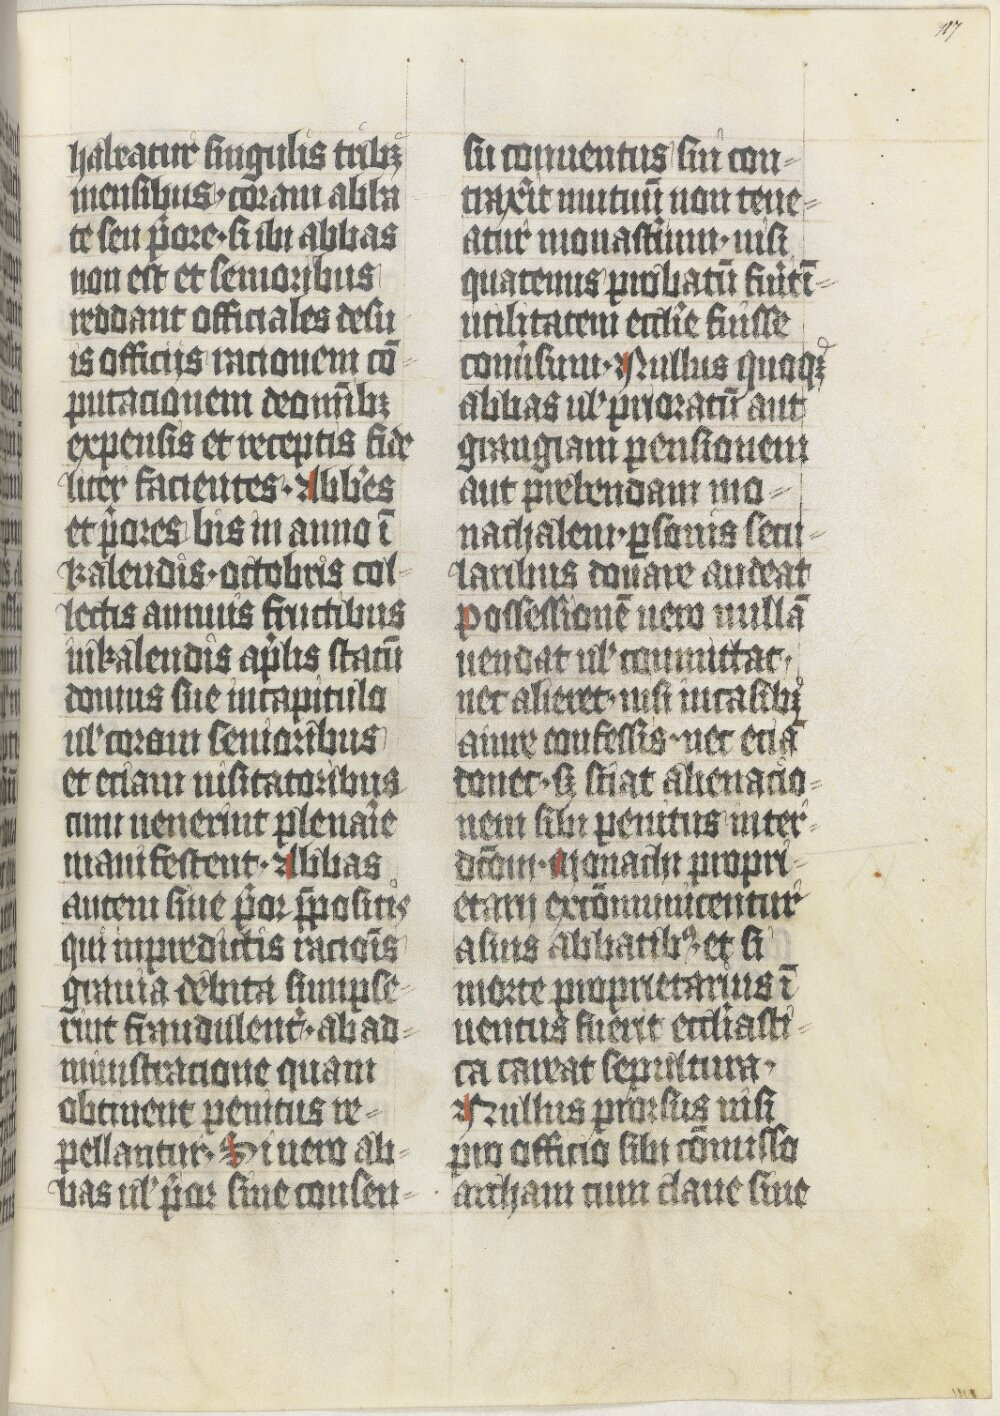 117
habeatur singulis tribꝫ
mensibus· coram abba
te seu p̓ore· si ibi abbas
non est et senioribus
reddant officiales de su
is officijs racionem cō
putacionem de om̄ibꝫ
expensis et receptis fide
liter facientes· Abb̓es
et p̓ores bis in anno ī
kalendis· octobris col-
lectis annuis fructibus
in kalendis ap̓lis statū
domus sue in capitulo
ul̓ coram senioribus
et eciam uisitatoribus
cum uenerint plenarie
manifestent· Abbas
autem siue p̓or p̄positis
qui in predictis racioīs
grauia debita sumpse-
rint fraudulent̓· ab ad-
ministracione quam
obtinent penitus re-
pellantur· Si uero ab-
bas ul̓ p̓or sine consen-
su conuentus sui con-
trax̓it mutuū non tene-
atur monast̓ium· nisi
quatenus probatū fu̓it ī-
utilitatem eccl̓ie fuisse
conu̓sum· Nullus quoqꝫ
abbas ul̓ prioratū aut
grangiam pensionem
aut prebendam mo-
nachalem· ꝑsonis secu-
laribus donare audeat
possessionē uero nullā
uendat ul̓ commuttat·
nec alienet· nisi in casibꝫ
a iure confessis· nec eciā
donet· sꝫ sciat alienacio-
nem sibi penitus inter-
dc̄am· Monachi propri-
etarij excōmunicentur
a suis abbatibꝰ· et si
morte proprietarius ī
uentus fuerit eccl̓iasti-
ca careat sepultura·
Nullus prorsus nisi
pro officio sibi cōmisso
archam cum claue siue